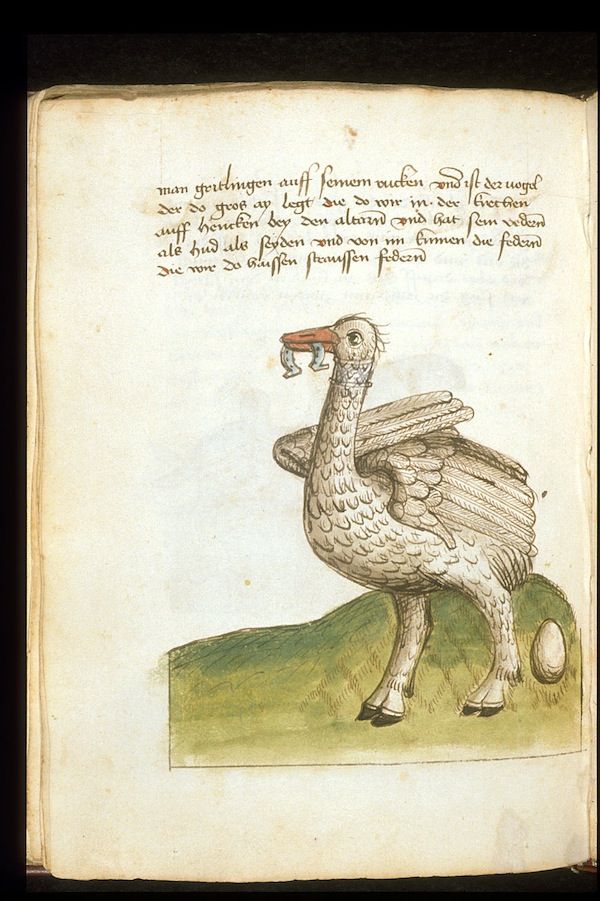 man geritlingen auff seinem rucken und ist der vogel
der do gros ay legt die do wir in der kirchen
auff hencken bey den altarn und hat sein vedern
als lind als seyden und von im kumen die federn
die wir do haissen straussen federn